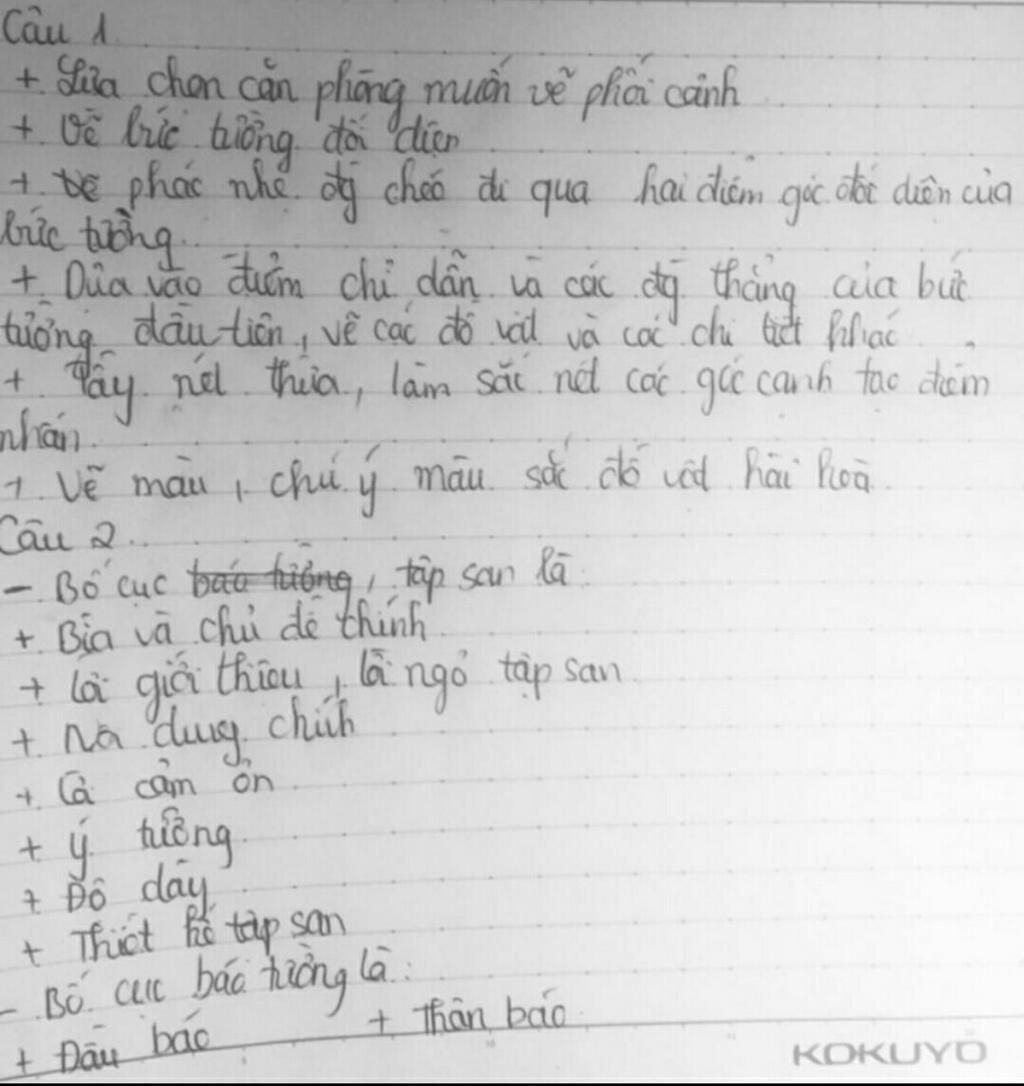 Câu 1.
+ Lựa chọn căn phòng muốn vẽ phối cảnh
+ Vẽ bức tường đối diện
+ Vẽ phác nhẹ đg chéo đi qua hai điểm góc đối diện của
bức tường.
+ Dựa vào điểm chỉ dẫn và các đg thẳng của bức
tường đầu tiên, vẽ các đồ vật và các chi tiết khác.
+ Tẩy nét thừa, làm sắc nét các góc cạnh tạo điểm
nhấn.
+ Vẽ màu, chú ý màu sắc đồ vật hài hoà
Câu 2.
- Bố cục báo tường, tập san là:
+ Bìa và chủ đề chính
+ Lời giới thiệu, lời ngỏ tập san
+ Nội dung chính
+ Lời cảm ơn
+ Ý tưởng
+ Độ dày
+ Thiết kế tập san
- Bố cục báo tường là:
+ Đầu báo + Thân báo
KOKUYO